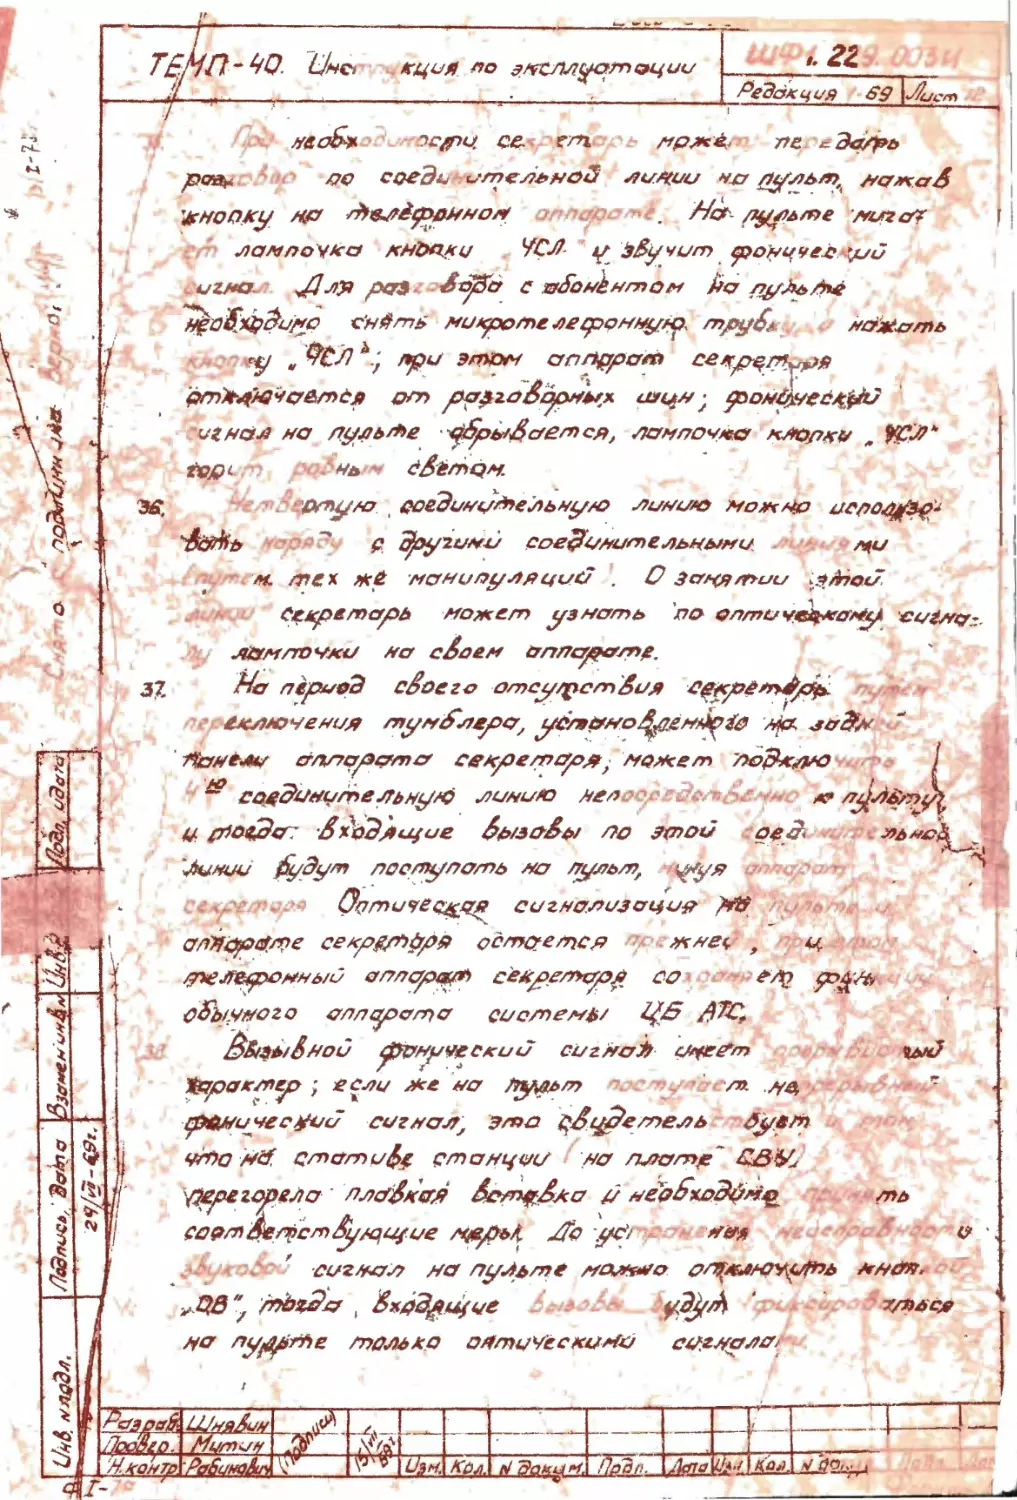 ТЕМП-40. Инструкция по эксплуатации
ШФ1. 229. 003И
Редакция 1-69 Лист
При необходимости секретарь может передать
разговор по соединительной линии на пульт, нажав
кнопку на телефонном аппарате. На пульте мига-
ет лампочка кнопки ЧСЛ" и звучит фонический
сигнал. Для разговора с абонентом на пульте
необходимо снять микротелефонную трубку и нажать
кнопку „ЧСЛ"; при этом аппарат секретаря
отключается от разговорных шин; фонический
сигнал на пульте обрывается, лампочка кнопки „ЧСЛ"
горит ровным светом.
36. Четвертую соединительную линию можно использо-
вать наряду с другими соединительными линиями
путем тех же манипуляций. О занятии этой
линии секретарь может узнать по оптическому сигна-
лу лампочки на своем аппарате.
37. На период своего отсутствия секретарь путем
переключения тумблера, установленного на задней
панели аппарата секретаря, может подключить
4ю соединительную линию непосредственно к пульту
и тогда входящие вызовы по этой соединительной
линии будут поступать на пульт, минуя аппарат
секретаря Оптическая сигнализация на пульте и
аппарате секретаря остается прежней, при этом
телефонный аппарат секретаря сохраняет функции
обычного аппарата системы ЦБ АТС.
38. Вызывной фонический сигнал имеет прерывистый
характер; если же на пульт поступает непрерывный
фонический сигнал, это свидетельствует о том,
что на стативе станции на плате СВУ
перегорела плавкая вставка и необходимо принять
соответствующие меры. До устранения неисправности
звуковой сигнал на пульте можно отключить кнопкой
„ОВ", тогда входящие вызовы будут фиксироваться
на пульте только оптическими сигналами
Разраб. Шнявин (Подписи) 15/VII 69г.
Провер. Митин
Н.контр Рабинович Изм. Кол. № докум. Подп. Дата Изм. Кол. № докум. Подп. Дата
Снято с подлинника Верно:
Подп. и дата
Инв.№
Взамен инв.№
Подпись, дата
29/VII-69г.
Инв. № подл.